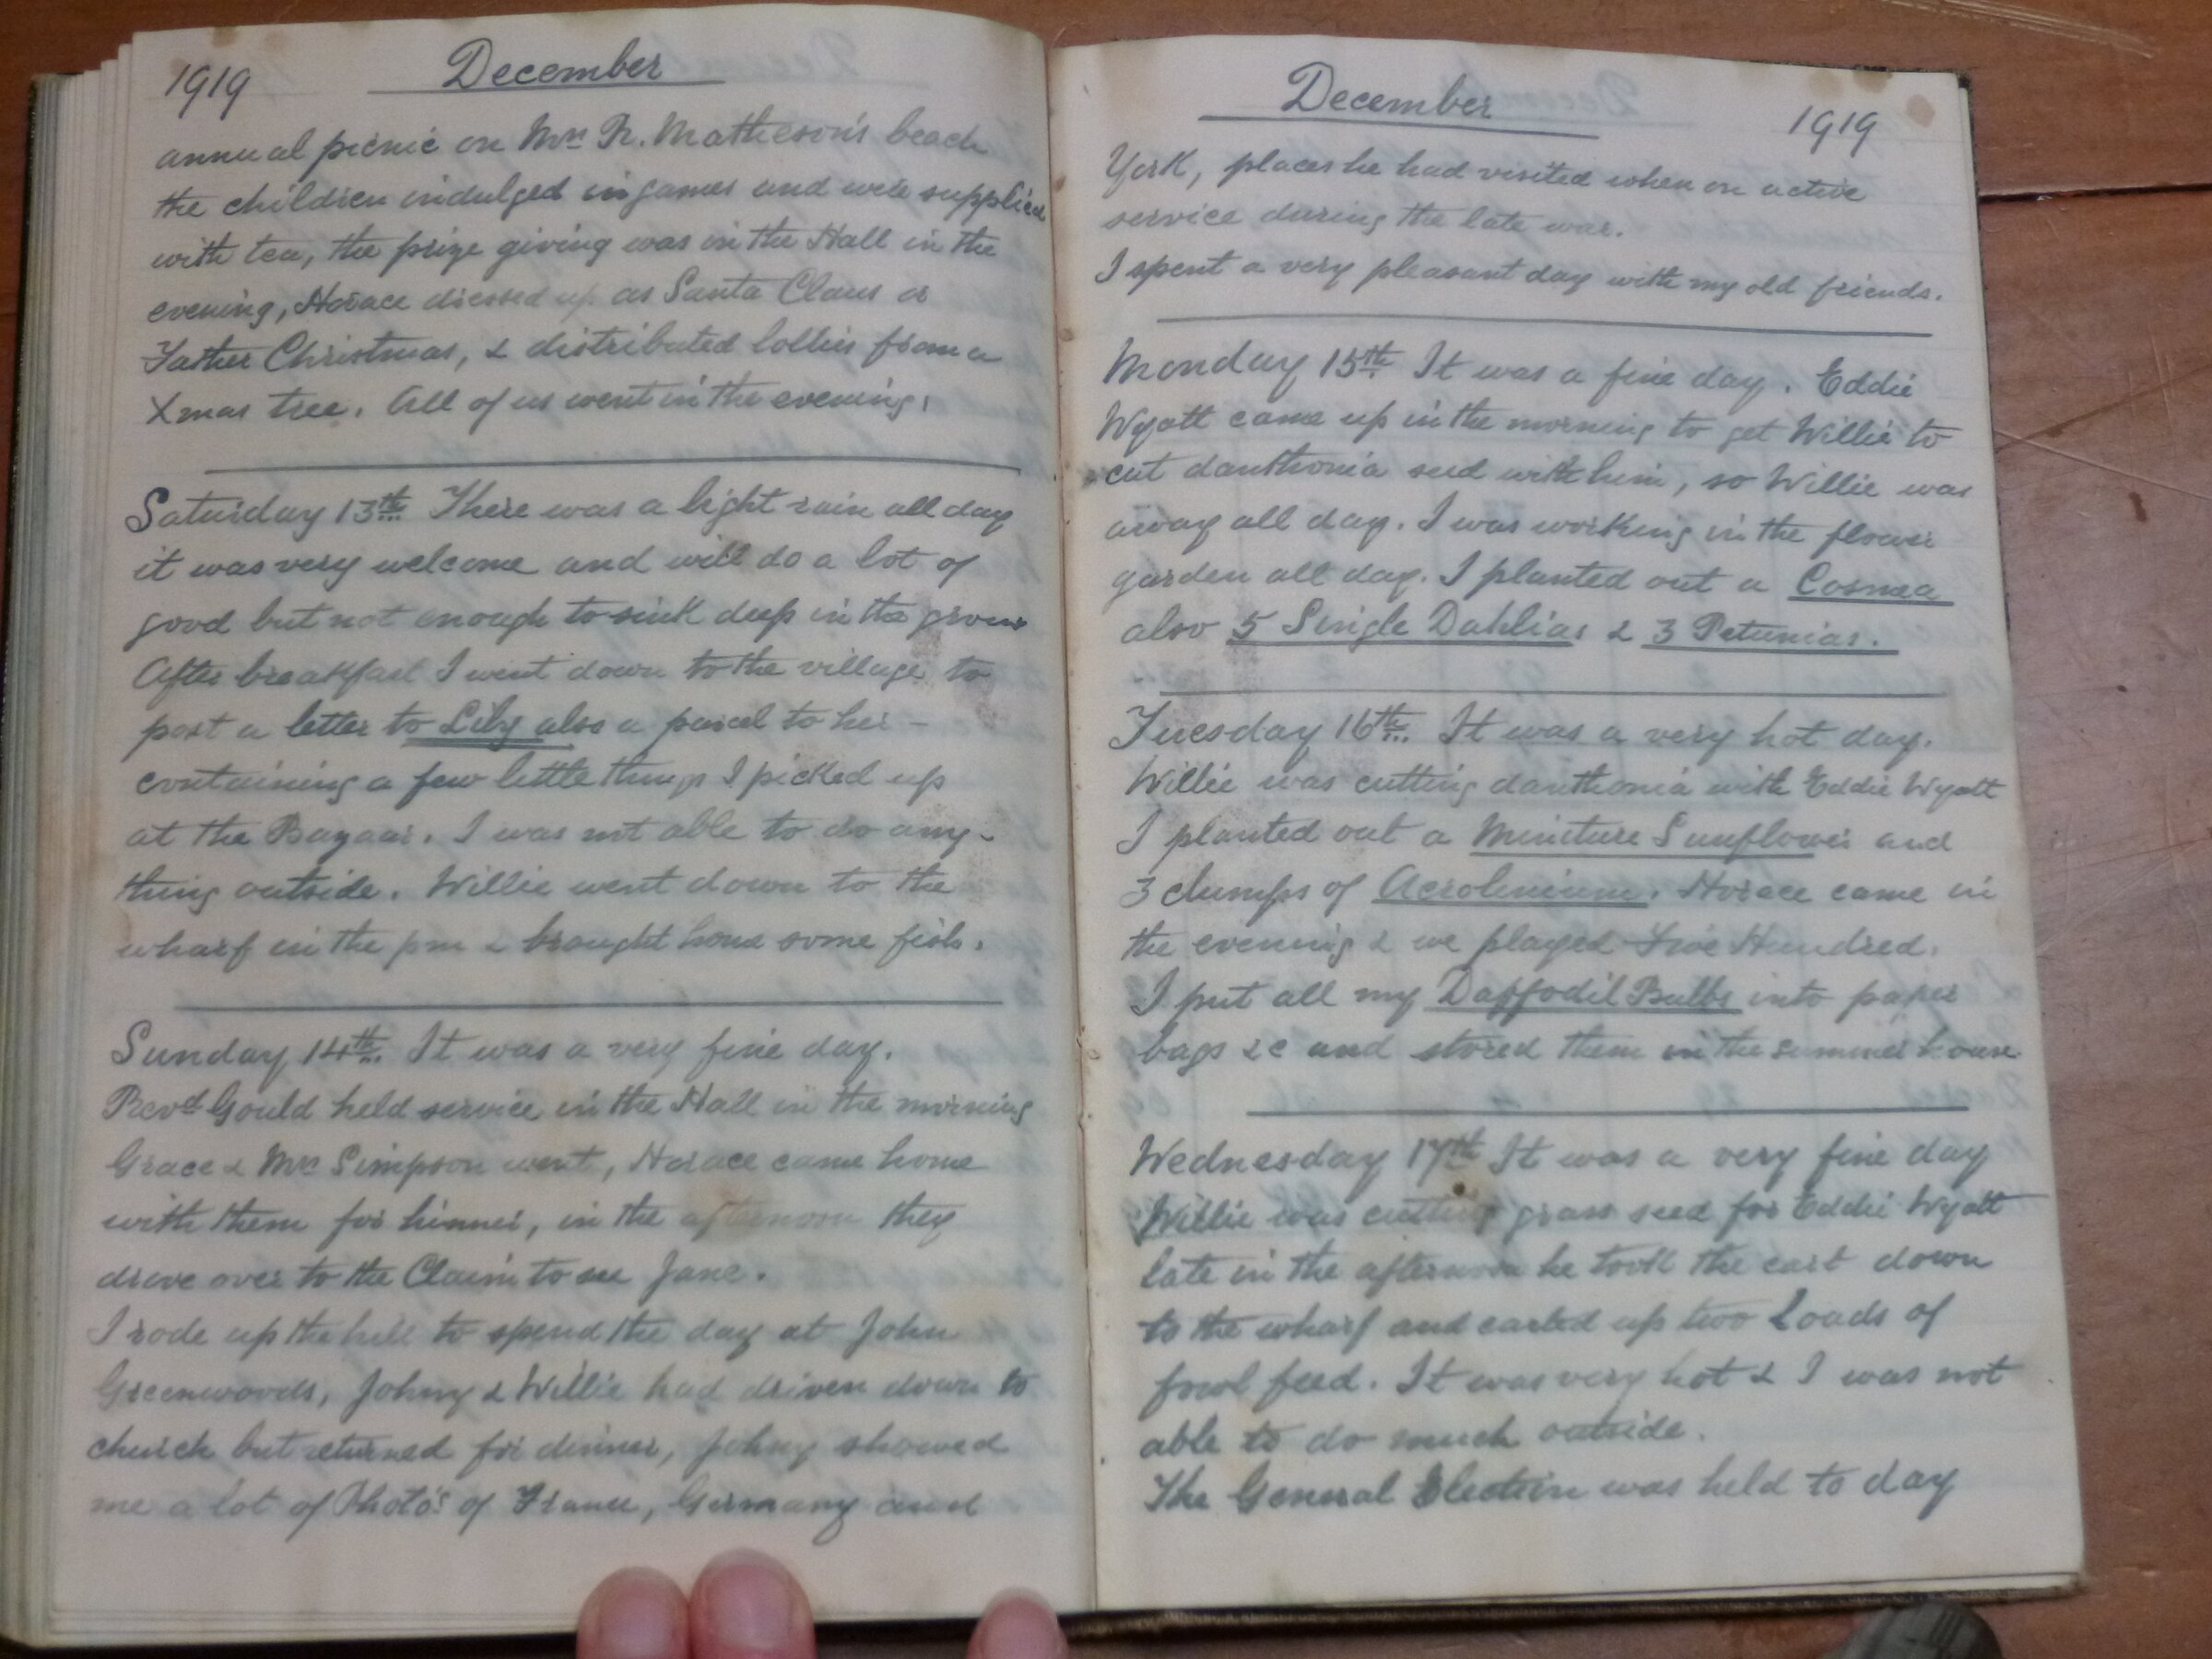 1919 December
annual picnic on Mrs R. Matheson's beach
the children indulged in games and were supplied
with tea, the prize giving was in the Hall in the
evening, Horace dressed up as Santa Claus or
Father Christmas, & distributed lollies from a
Xmas tree. All of us went in the evening.
Saturday 13th. There was a light rain all day
it was very welcome and will do a lot of
good but not enough to sink deep in the ground
After breakfast I went down to the village to
post a letter to Lily also a parcel to her –
containing a few little things I picked up
at the Bazaar. I was not able to do any-
thing outside. Willie went down to the
wharf in the pm & brought home some fish.
Sunday 14th. It was a very fine day.
Revd Gould held service in the Hall in the morning
Grace & Mrs Simpson went, Horace came home
with them for hinner, in the afternoon they
drove over to the Claim to see Jane.
I rode up the hill to spend the day at John
Greenwoods, Johny & Willie had driven down to
church but returned for dinner, Johny showed
me a lot of Photo's of France, Germany and
December 1919
York, places he had visited when on active
service during the late war.
I spent a very pleasant day with my old friends.
Monday 15th It was a fine day. Eddie
Wyatt came up in the morning to get Willie to
cut danthonia seed with him, so Willie was
away all day. I was working in the flower
garden all day. I planted out a Cosmea
also 5 Single Dahlias & 3 Petunias.
Tuesday 16th. It was a very hot day.
Willie was cutting danthonia with Eddie Wyatt
I planted out a Miniture Sunflower and
3 clumps of Acrolenium. Horace came in
the evening & we played Five Hundred.
I put all my Daffodil Bulbs into paper
bags &c and stored them in the summer house
Wednesday 17th It was a very fine day
Willie was cutting grass seed for Eddie Wyatt
late in the afternoon he took the cart down
to the wharf and carted up two Loads of
fowl feed. It was very hot & I was not
able to do much outside.
The General Election was held to day